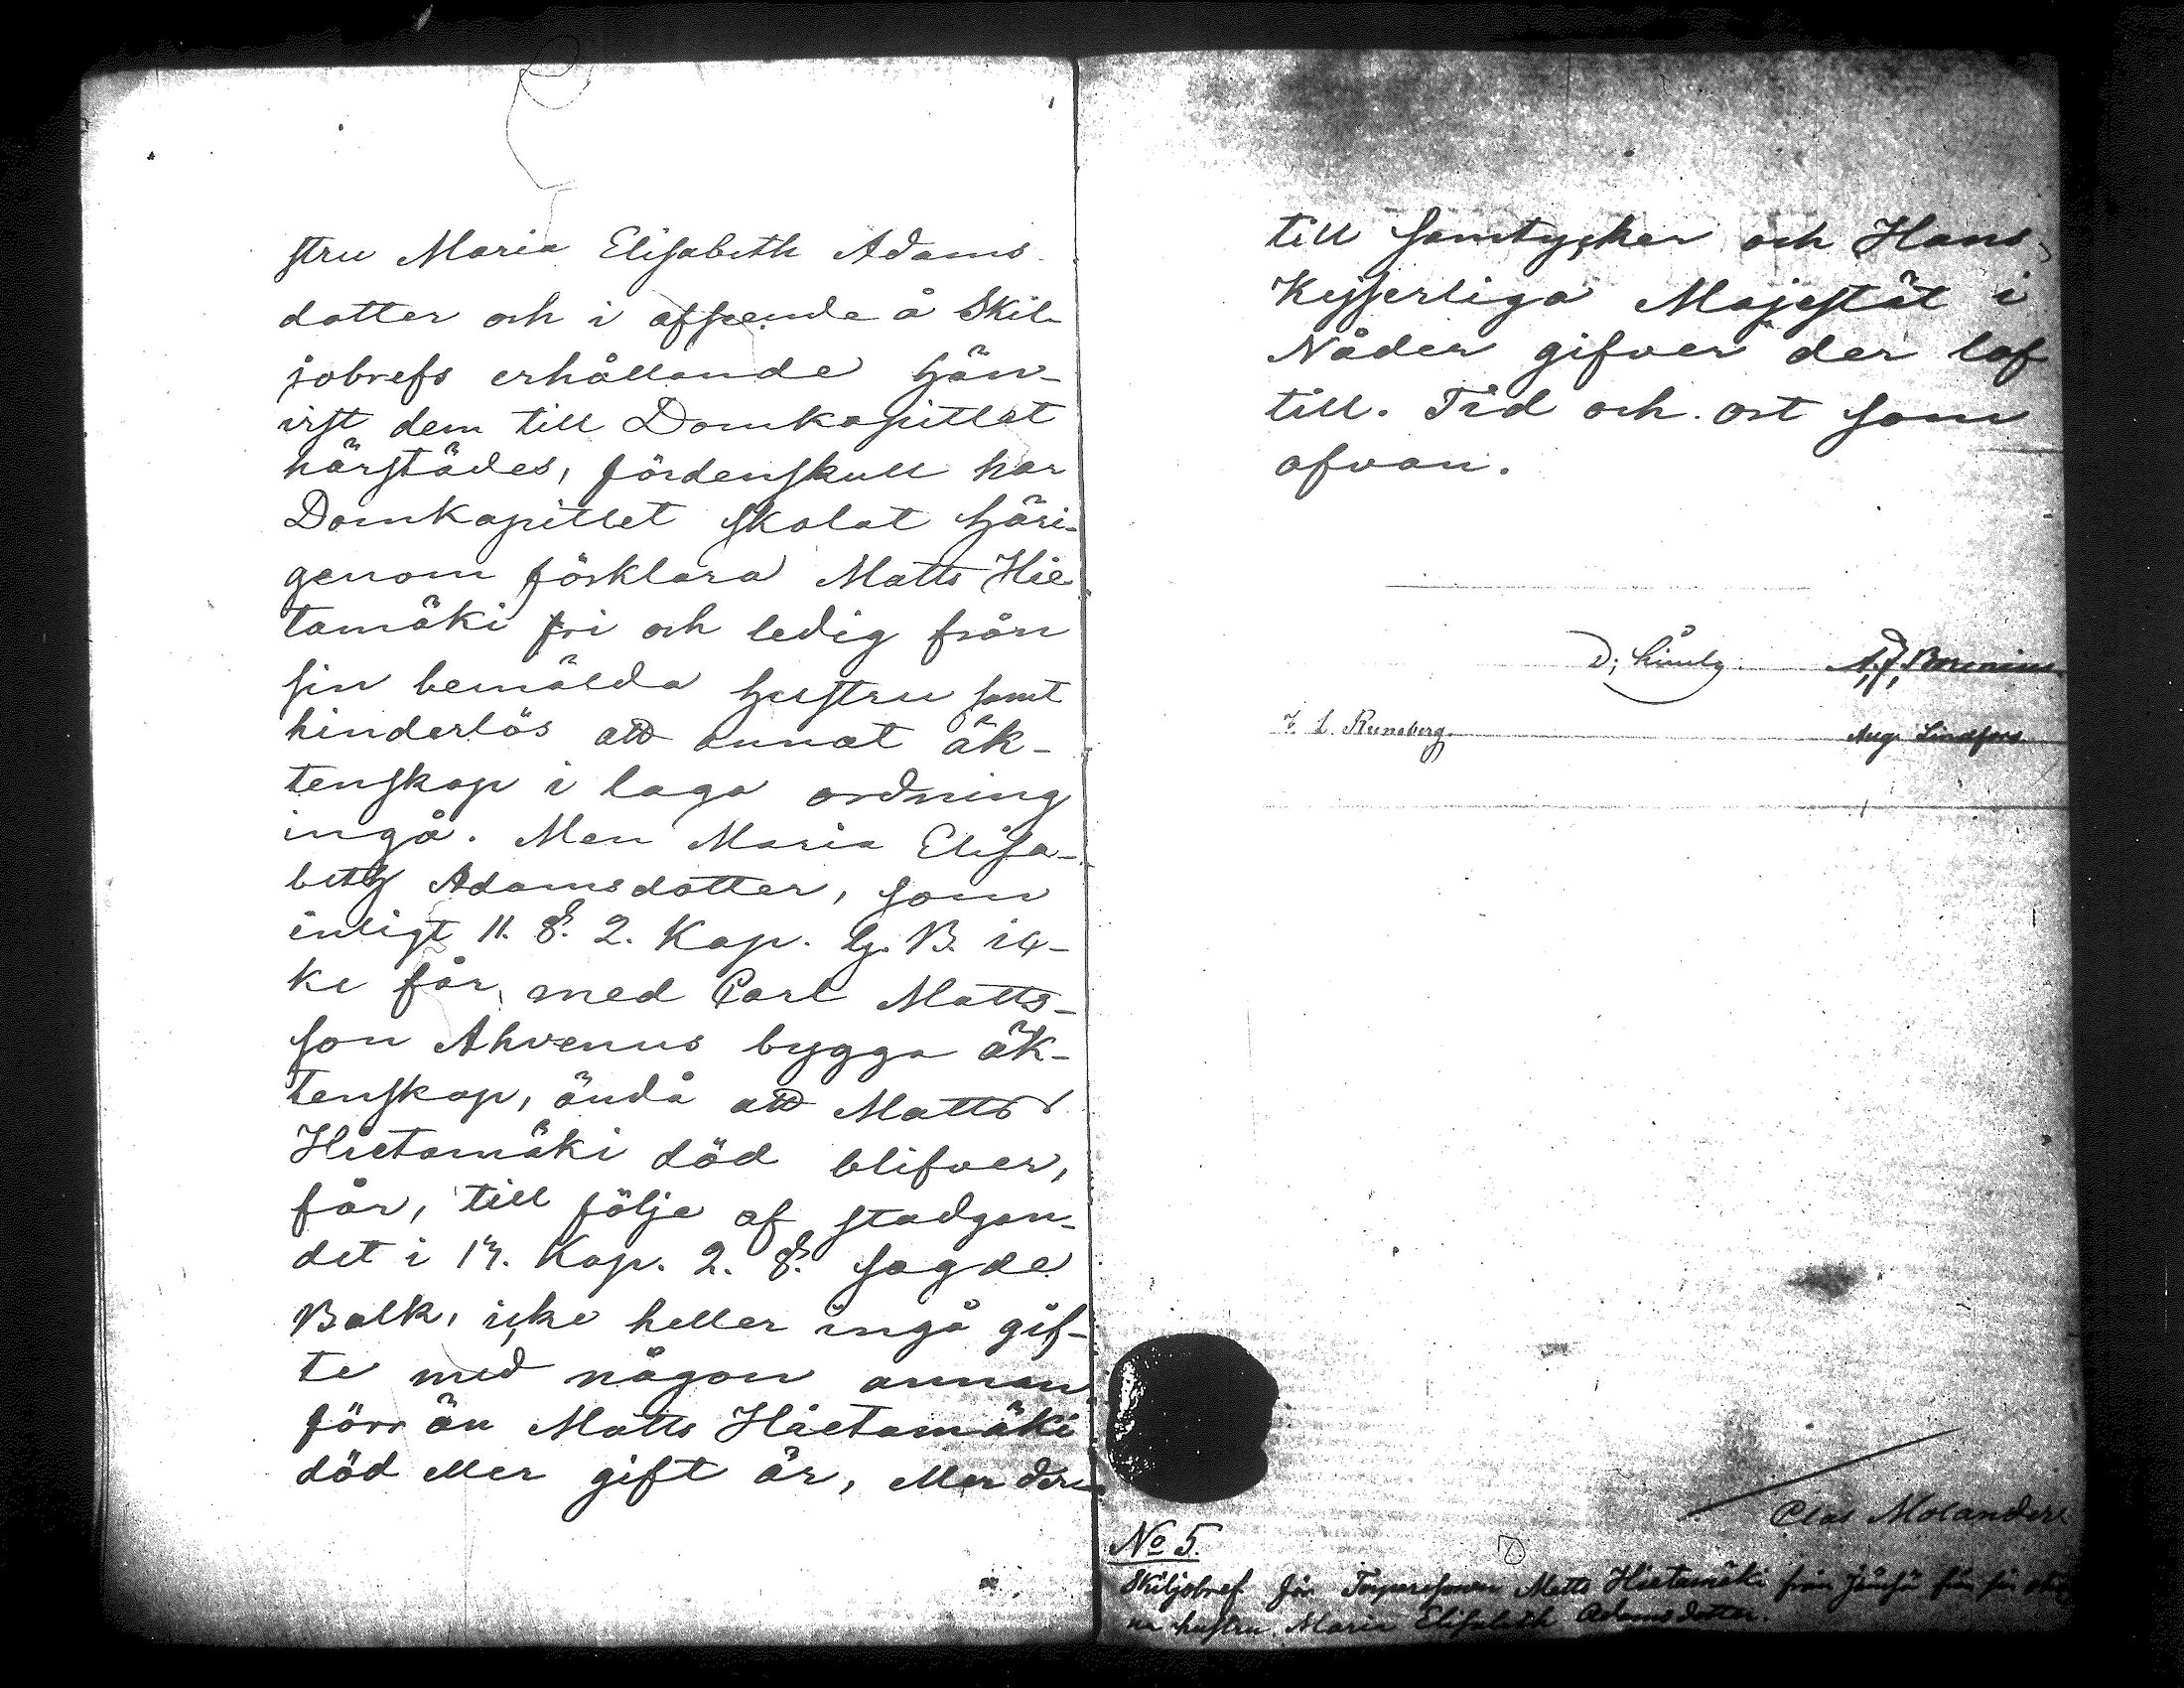 stru Maria Elisabeth Adams
dotter och i afseende å Skil-
jobrefs erhållande hän-
vist dem till Domkapitlet
härstädes, fördenskull har
Domkapitlet skolat häri-
genom förklara Matts Hie
tamäki fri och ledig från
sin bemälda hustru samt
hinderlös att annat äk-
tenskap i laga ordning
ingå. Men Maria Elisa-
beth Adamsdotter, som
enligt 11. §. 2. Kap. G. B. ic-
ke får med Carl Matts-
son Ahvenus bygga äk-
tenskap, ändå att Matts
Hietamäki död blifver,
får, till följe af stadgan-
det i 13. Kap. 2. §. sagde
Balk, icke heller ingå gif-
te med någon annan
förr än Matts Hietamäki
död eller gift är, eller der-
till samtycker och Hans
Kejserliga Majestät i
Nåder gifver der lof
till. Tid och ort som
ofvan.
A. J. Borenius
J. L. Runeberg
Aug. Lindfors
Clas Molander
No 5.
Skiljobref för Matts Hietamäki från från sin
na hustru Maria Elisabeth Adamsdotter.